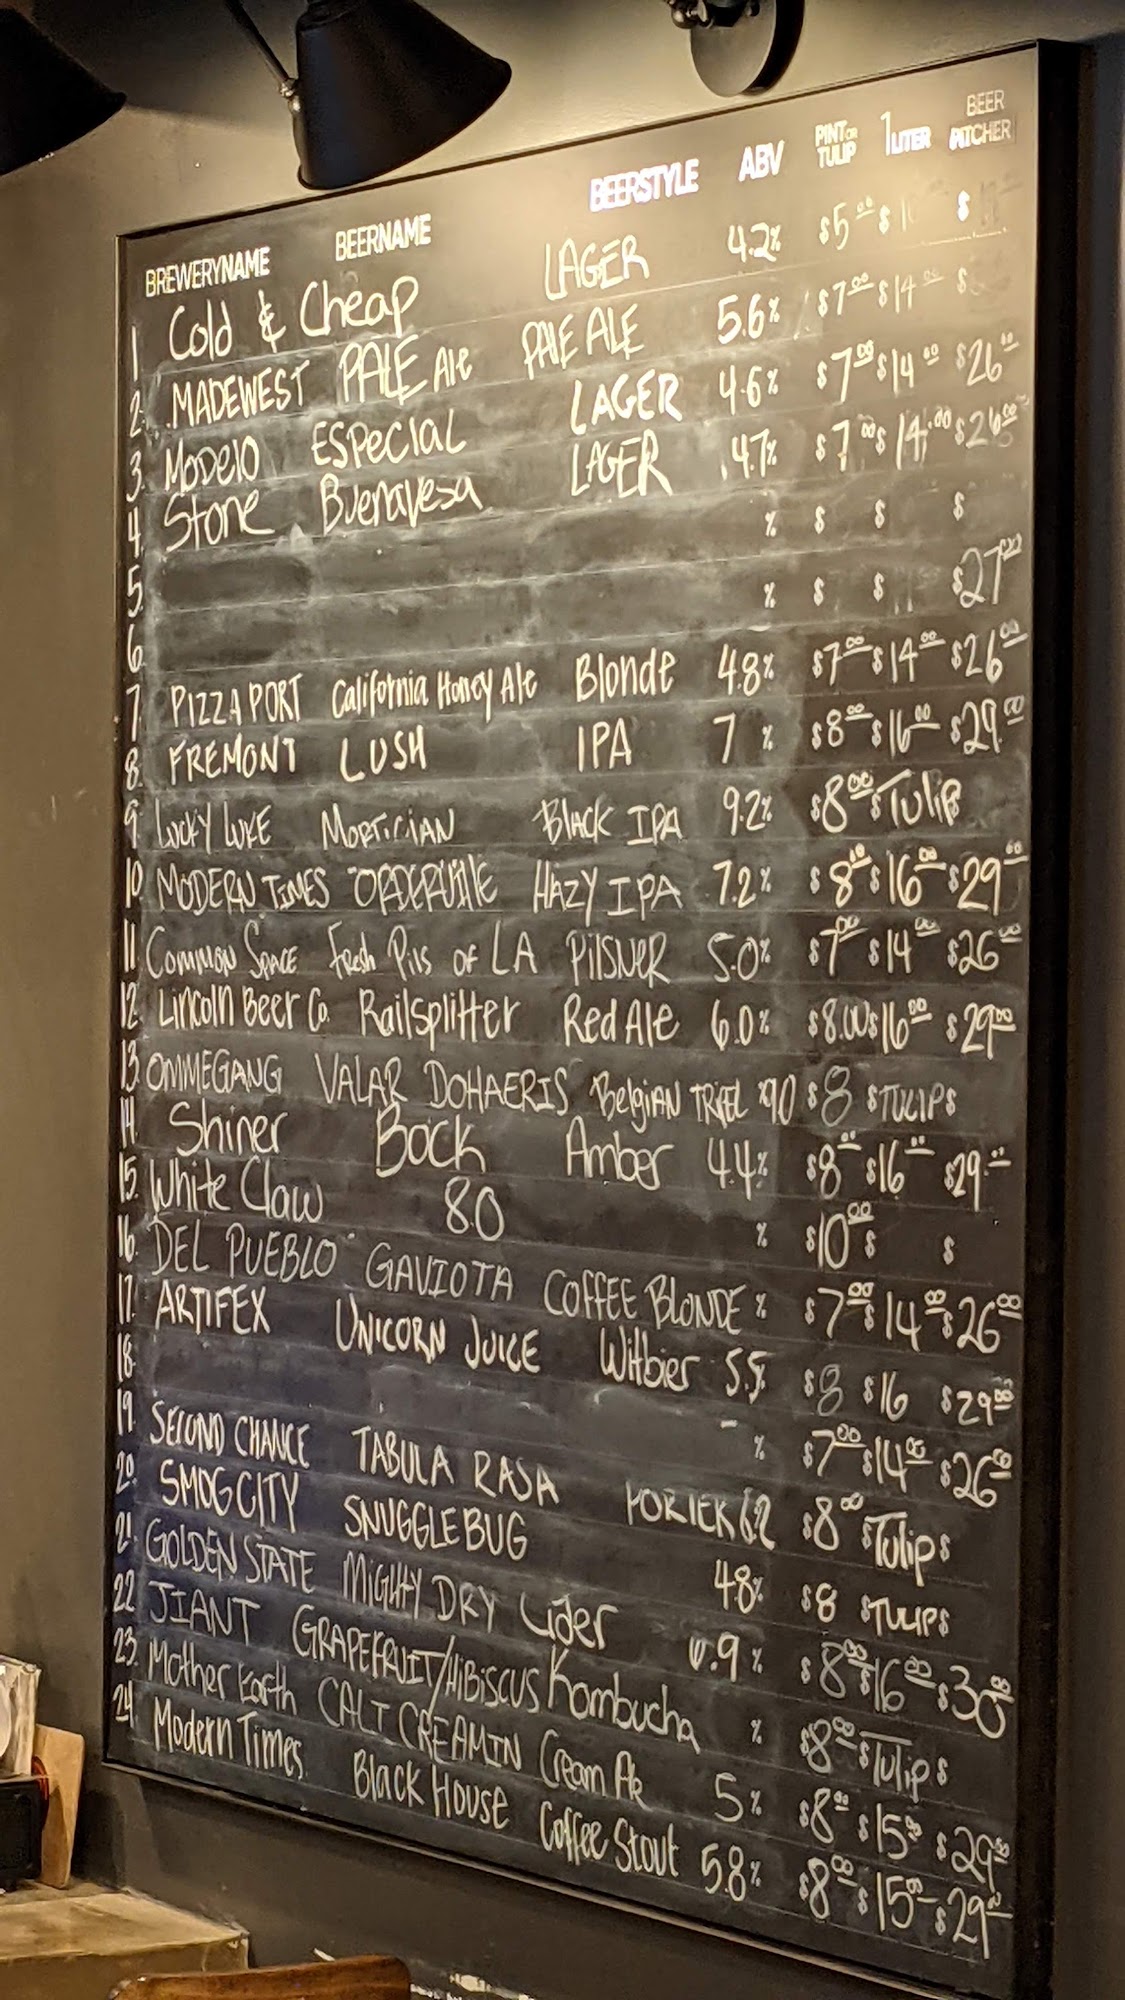 BREWERYNAME BEERNAME BEERSTYLE ABV PINT OR TULIP 1 LITER BEER PITCHER
1 Cold & Cheap LAGER 4.2% $5.00 $ $
2. MADEWEST PALE Ale PALE ALE 5.6% $7.00 $14.00 $
3. Modelo ESPECIAL LAGER 4.6% $7.00 $14.00 $26.00
4. Stone Buenavesa LAGER 4.7% $7.00 $14.00 $26.00
5. % $ $ $
6 % $ $ $27.00
7. PIZZA PORT California Honey Ale Blonde 4.8% $7.00 $14.00 $26.00
8. FREMONT LUSH IPA 7 % $8.00 $16.00 $29.00
9. LUCKY LUKE MORTICIAN BLACK IPA 9.2% $8.00 $Tulip
10 MODERN TIMES ORDERVILLE HAZY IPA 7.2% $8.00 $16.00 $29.00
11 COMMON SPACE Fresh Pils of LA PILSNER 5.0% $7.00 $14.00 $26.00
12. Lincoln Beer Co. Railsplitter Red Ale 6.0% $8.00 $16.00 $29.00
13. OMMEGANG VALAR DOHAERIS Belgian TRIPEL 9.0 $8 $TULIP$
14. Shiner Bock Amber 4.4% $8.00 $16.00 $29.00
15. White Claw 8.0 % $10.00 $ $
16. DEL PUEBLO GAVIOTA COFFEE BLONDE % $7.00 $14.00 $26.00
17. ARTIFEX UNICORN JUICE Witbier 5.5% $8 $16 $29.00
18. % $7.00 $14.00 $26.00
19. SECOND CHANCE TABULA RASA PORTER 6.2 $8.00 $Tulip$
20. SMOG CITY SNUGGLEBUG 4.8% $8 $TULIP$
21. GOLDEN STATE MIGHTY DRY Cider 6.9% $8.00 $16.00 $30.00
22. JIANT GRAPEFRUIT/HIBISCUS Kombucha % $8.00 $Tulip$
23. Mother Earth CALI CREAMIN Cream Ale 5% $8.00 $15.00 $29.00
24. Modern Times Black House Coffee Stout 5.8% $8.00 $15.00 $29.00